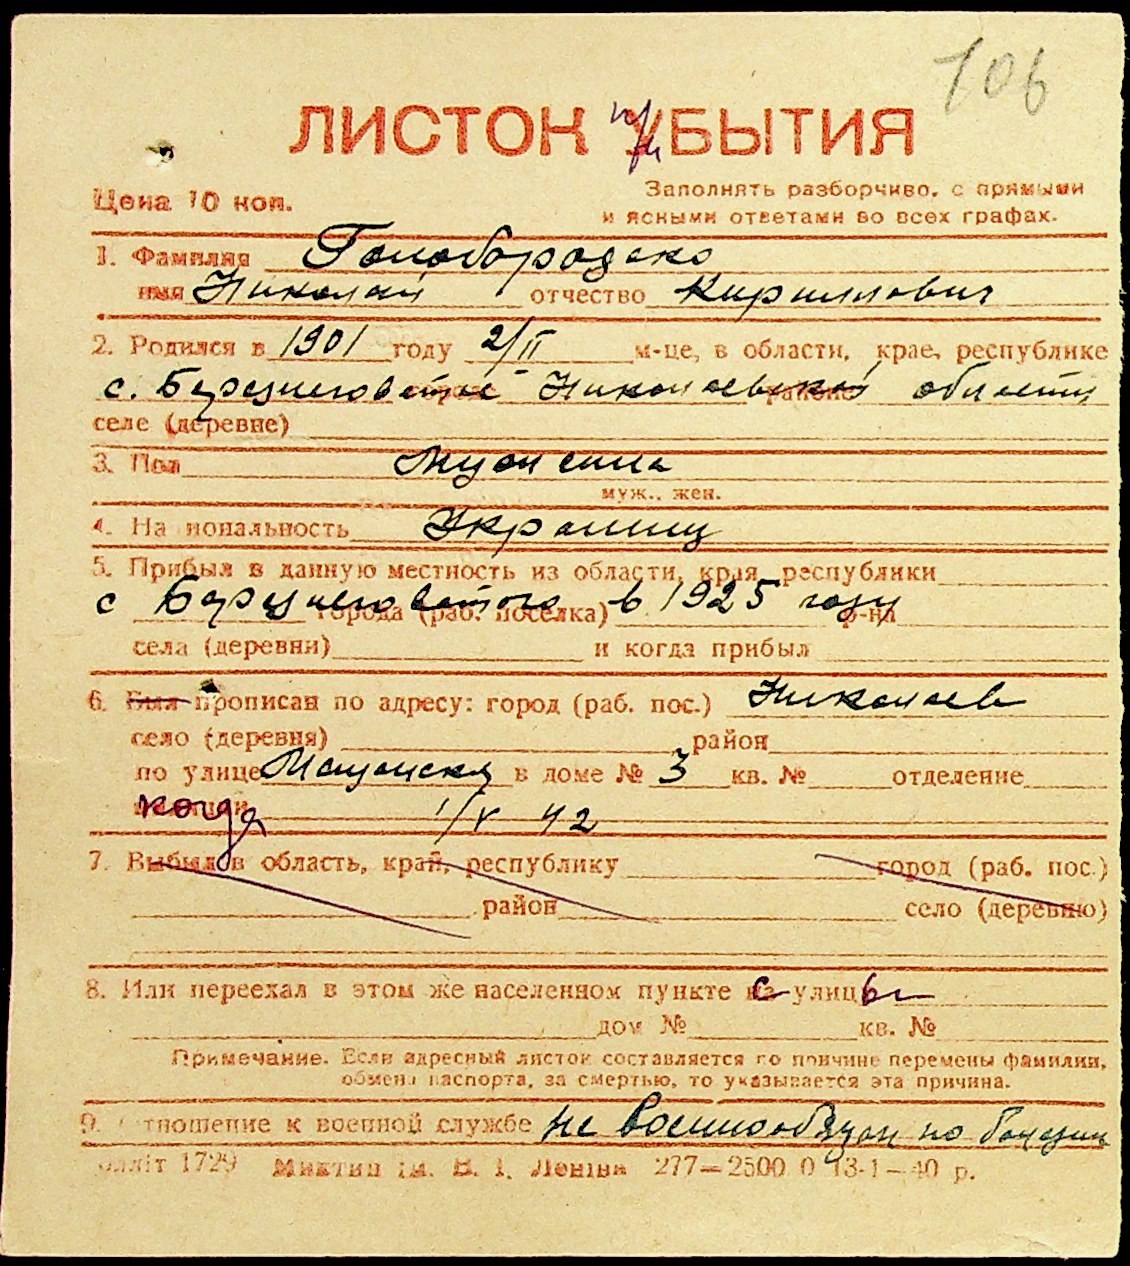 106
ЛИСТОК УБЫТИЯ
при
Цена 10 коп.
Заполнять разборчиво, с прямыми
и ясными ответами во всех графах.
1. Фамилия Голобородько
имя Николай отчество Кириллович
2. Родился в 1901 году 2/II м-це, в области, крае, республике
с. Березнеговатое Николаевской области
селе (деревне)
3. Пол Мужчина
муж., жен.
4. Национальность Украинец
5. Прибыл в данную местность из области, края, республики
с Березнеговатого в 1925 году
города (раб. поселка) р-на
села (деревни) и когда прибыл
6. Был прописан по адресу: город (раб. пос.) Николаев
село (деревня) район
по улице в доме № 3 кв. № отделение
когда 1/V 42
7. Выбыл в область, край, республику город (раб. пос.)
район село (деревню)
8. Или переехал в этом же населенном пункте с улицы
дом № кв. №
Примечание. Если адресный листок составляется по причине перемены фамилии,
обмена паспорта, за смертью, то указывается эта причина.
9. Отношение к военной службе не военнообязан по болезни
1729 ім. В. І. Леніна 277—2500 0 13-1—40 р.